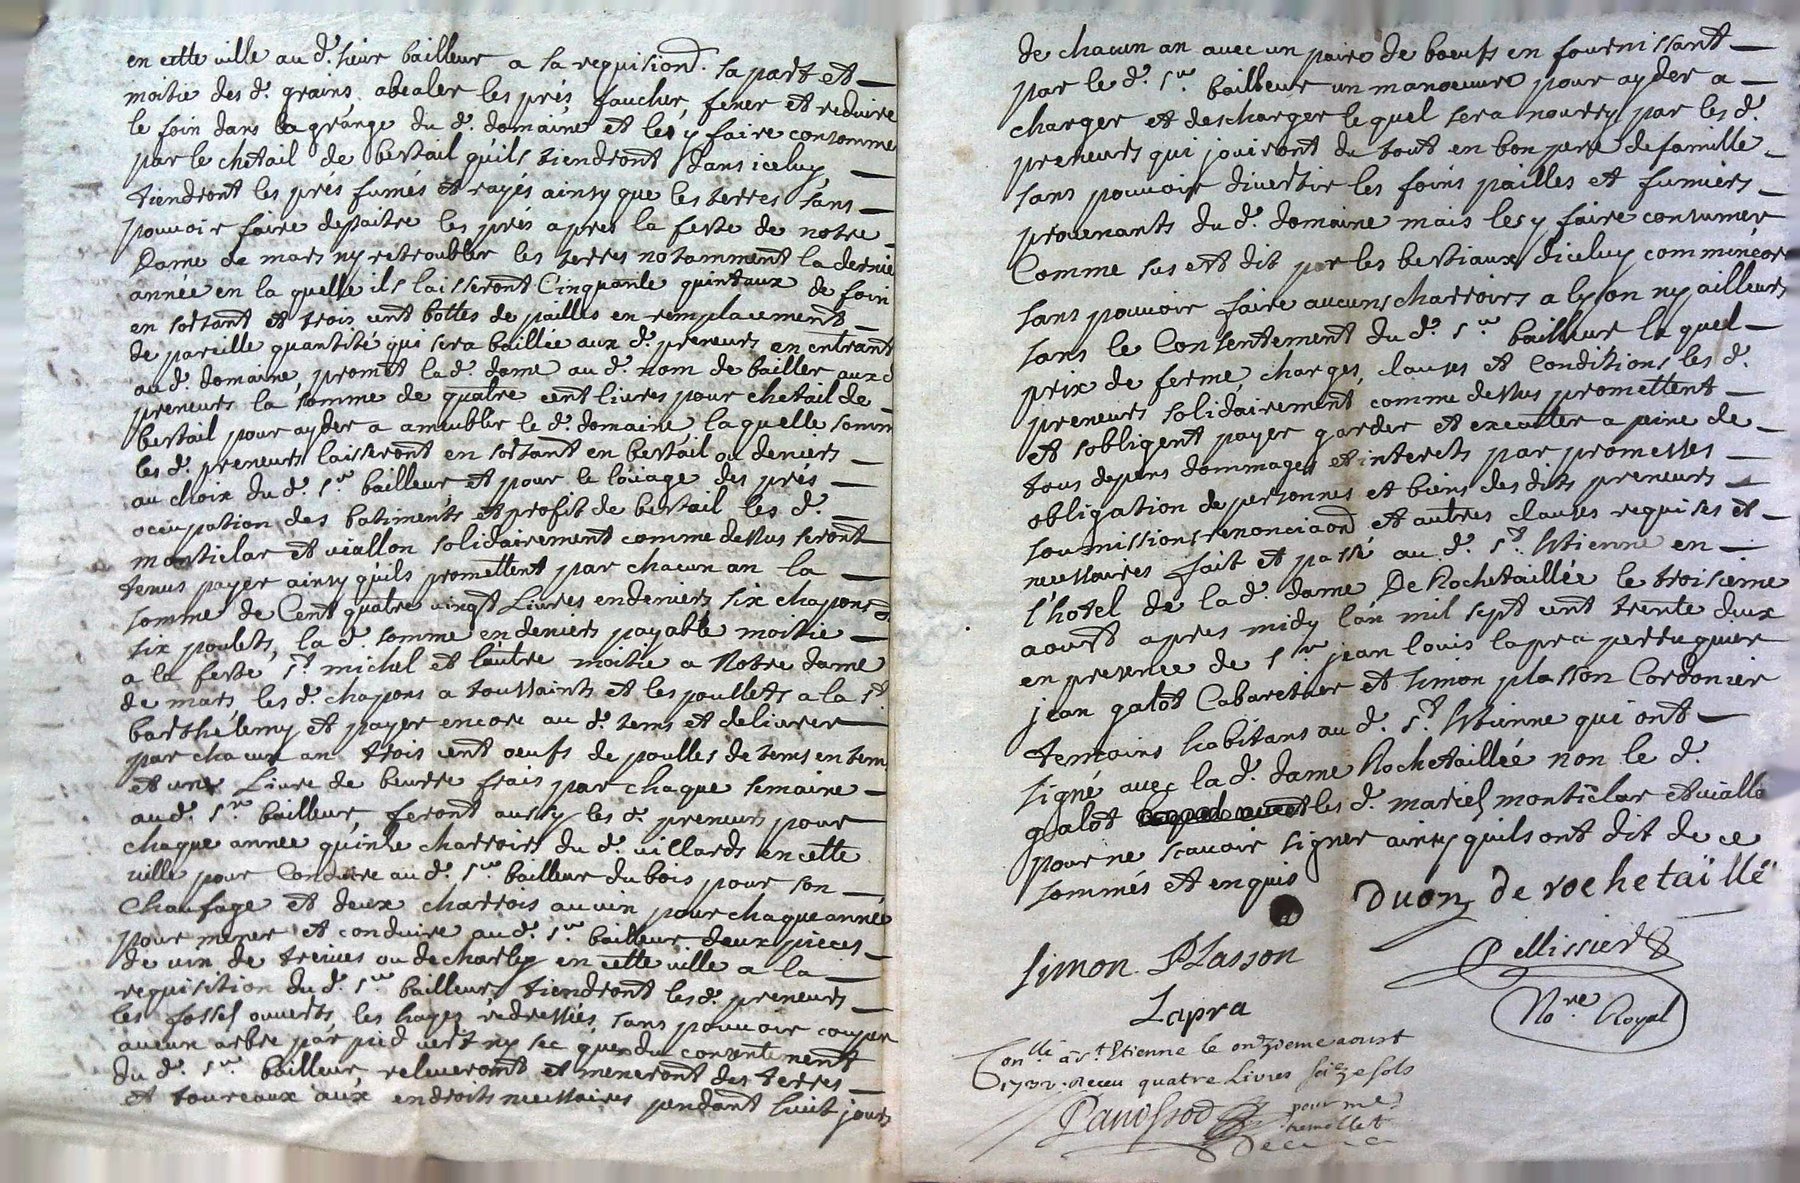 en cette ville au d. sieur bailleur a sa requision. sa part et
moitie des d. grains, abealer les prés, faucher, fener et reduire
le foin dans la grange du d. domaine et les y faire consomme
par le chetail de bestail qu'ils tiendront dans iceluy,
tiendront les prés fumés et rayés ainsy que les terres sans
pouvoir faire depaitre les prés apres la feste de notre
Dame de mars ny retroubler les terres notamment la dernie
année en la quelle ils laisseront Cinquante quintaux de foin
en sortant et trois cent bottes de pailles en remplacement
de pareille quantité qui sera baillée aux d. preneurs en entrant
au d. domaine, promet la d. dame au d. nom de bailler aux d
preneurs la somme de quatre cent livres pour chetail de
bestail pour ayder a ameubler le d. domaine laquelle somm
les d. preneurs laisseront en sortant en bestail ou deniers
au choix du d. sr bailleur et pour le loüage des prés
occupation des batiments et profit de bestail les d.
monticlar et viallon solidairement comme dessus seront
tenus payer ainsy qu'ils promettent par chacun an la
somme de Cent quatre vingt Livres en deniers six chapons
six poulets, la d. somme en deniers payable moitie
a la feste st michel et l'autre moitie a Notre dame
de mars, les d. chapons a toussaints et les poullets a la st
barthelemy et payer encore au d. tems et delivrer
par chacun an trois cent oeufs de poulles de tems en tems
et une Livre de beurre frais par chaque semaine
au d. sr bailleur, feront aussy les d. preneurs pour
chaque année quinze charroirs du d. villards en cette
ville pour Conduire au d. sr bailleur du bois pour son
Chaufage et deux charrois au vin pour chaque année
pour mener et conduire au d. sr bailleur deux pieces
de vin de treives ou de charley en cette ville a la
requisition du d. sr bailleur, tiendront les d. preneurs
les fossés ouverts les hayes redressées, sans pouvoir couper
aucun arbre par pied vert ny sec que du consentement
du d. sr bailleur, releveront et meneront des terres
et toureaux aux endroits necessaires pendant huit jours
de chacun an avec un paire de boeufs en fournissant
par le d. sr bailleur un manoeuvre pour ayder a
charger et descharger lequel sera nourry par les d.
preneurs qui jouiront du tout en bon pere de famille
sans pouvoir divertir les foins pailles et fumiers
provenants du d. domaine mais les y faire consumer
Comme sus est dit par les bestiaux diceluy
sans pouvoir faire aucuns charroirs a lyon ny ailleurs
sans le Consentement du d. sr bailleur laquel
prix de ferme, charges, clauses et Conditions les d.
preneurs solidairement comme dessus promettent
et sobligent payer garder et executer a peine de
tous depens dommages et interets par promesses
obligation de personnes et biens des dits preneurs
soumissions renonciaon et autres clauses requises et
necessaires fait et passé au d. st Etienne en
l'hotel de la d. dame De Rochetaillée le troisieme
aoust apres midy l'an mil sept cent trente deux
en presence de sr jean louis lapra perruquier
jean galot Cabaretier et simon plasson Cordonier
temoins habitans au d. st Etienne qui ont
signé avec la d. dame Rochetaillée non le d.
galot les d. marcel monticlar et viallo
pour ne scavoir signer ainsy quils ont dit de ce
sommés et enquis
Duon de rochetaïlleë
Simon PLasson
Pellissier
Lapra
Nore Royal
Conllé a st Etienne le onzieme aoust
1732. Receu quatre Livres seize sols
pour me